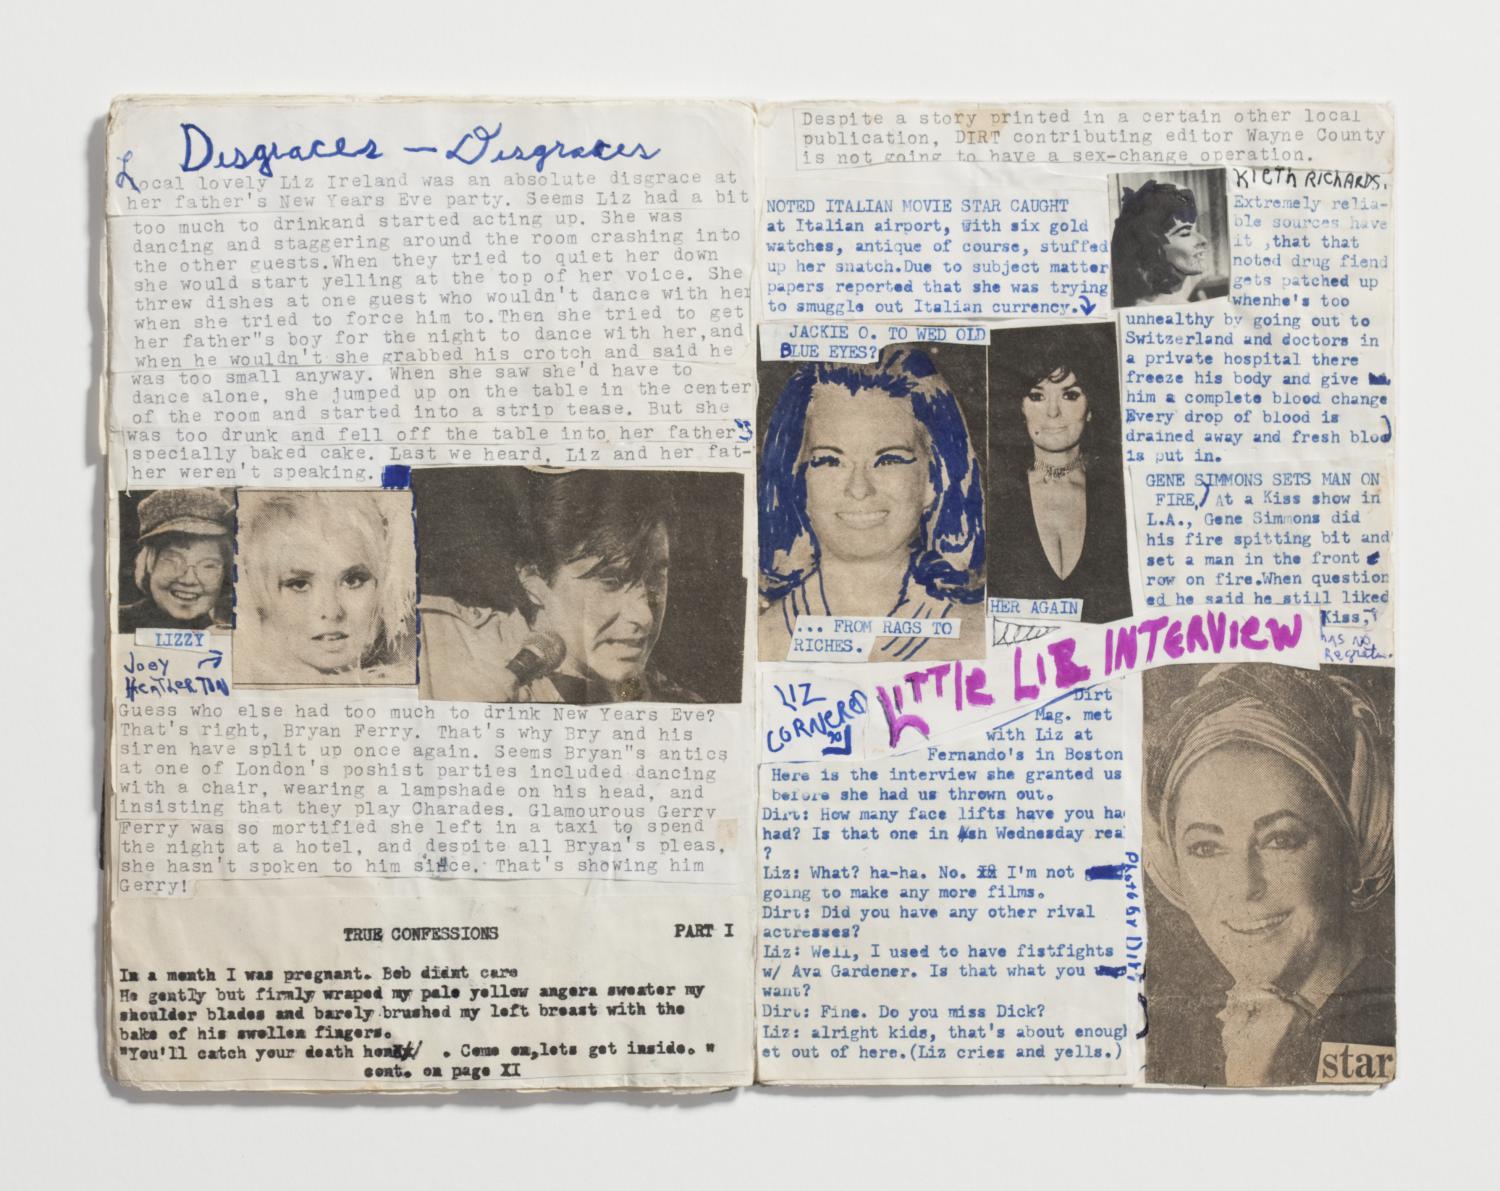 Disgraces — Disgraces
Local lovely Liz Ireland was an absolute disgrace at
her father's New Years Eve party. Seems Liz had a bit
too much to drinkand started acting up. She was
dancing and staggering around the room crashing into
the other guests.When they tried to quiet her down
she would start yelling at the top of her voice. She
threw dishes at one guest who wouldn't dance with her
when she tried to force him to.Then she tried to get
her father"s boy for the night to dance with her,and
when he wouldn't she grabbed his crotch and said he
was too small anyway. When she saw she'd have to
dance alone, she jumped up on the table in the center
of the room and started into a strip tease. But she
was too drunk and fell off the table into her father's
specially baked cake. Last we heard, Liz and her fat-
her weren't speaking.
LIZZY
Joey
HEATHERTON
Guess who else had too much to drink New Years Eve?
That's right, Bryan Ferry. That's why Bry and his
siren have split up once again. Seems Bryan"s antics
at one of London's poshist parties included dancing
with a chair, wearing a lampshade on his head, and
insisting that they play Charades. Glamourous Gerry
Ferry was so mortified she left in a taxi to spend
the night at a hotel, and despite all Bryan's pleas,
she hasn't spoken to him since. That's showing him
Gerry!
TRUE CONFESSIONS PART I
In a month I was pregnant. Bob didnt care
He gently but firmly wraped my pale yellow angera sweater my
shoulder blades and barely brushed my left breast with the
bake of his swollen fingers.
"You'll catch your death . Come on,lets get inside. "
cont. on page XI
Despite a story printed in a certain other local
publication, DIRT contributing editor Wayne County
is not going to have a sex-change operation.
NOTED ITALIAN MOVIE STAR CAUGHT
at Italian airport, with six gold
watches, antique of course, stuffed
up her snatch.Due to subject matter
papers reported that she was trying
to smuggle out Italian currency.
KIETH RICHARDS.
Extremely relia-
ble sources have
it ,that that
noted drug fiend
gets patched up
whenhe's too
unhealthy by going out to
Switzerland and doctors in
a private hospital there
freeze his body and give
him a complete blood change
Every drop of blood is
drained away and fresh blood
is put in.
JACKIE O. TO WED OLD
BLUE EYES?
... FROM RAGS TO
RICHES.
HER AGAIN
GENE SIMMONS SETS MAN ON
FIRE, At a Kiss show in
L.A., Gene Simmons did
his fire spitting bit and
set a man in the front
row on fire.When question
ed he said he still liked
Kiss,
has no
Regrets.
LITTLE LIZ INTERVIEW
LIZ
CORNERED
Dirt
Mag. met
with Liz at
Fernando's in Boston
Here is the interview she granted us
before she had us thrown out.
Dirt: How many face lifts have you ha
had? Is that one in Ash Wednesday rea
?
Liz: What? ha-ha. No. I'm not
going to make any more films.
Dirt: Did you have any other rival
actresses?
Liz: Well, I used to have fistfights
w/ Ava Gardener. Is that what you
want?
Dirt: Fine. Do you miss Dick?
Liz: alright kids, that's about enoug
et out of here.(Liz cries and yells.)
Photo by Dirt
star